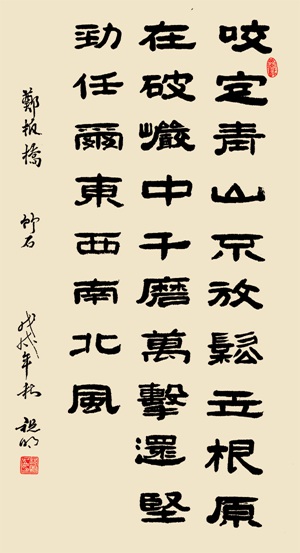 咬定青山不放鬆立根原
在破巖中千磨萬擊還堅
勁任爾東西南北風
鄭板橋 竹石 戊戌年秋